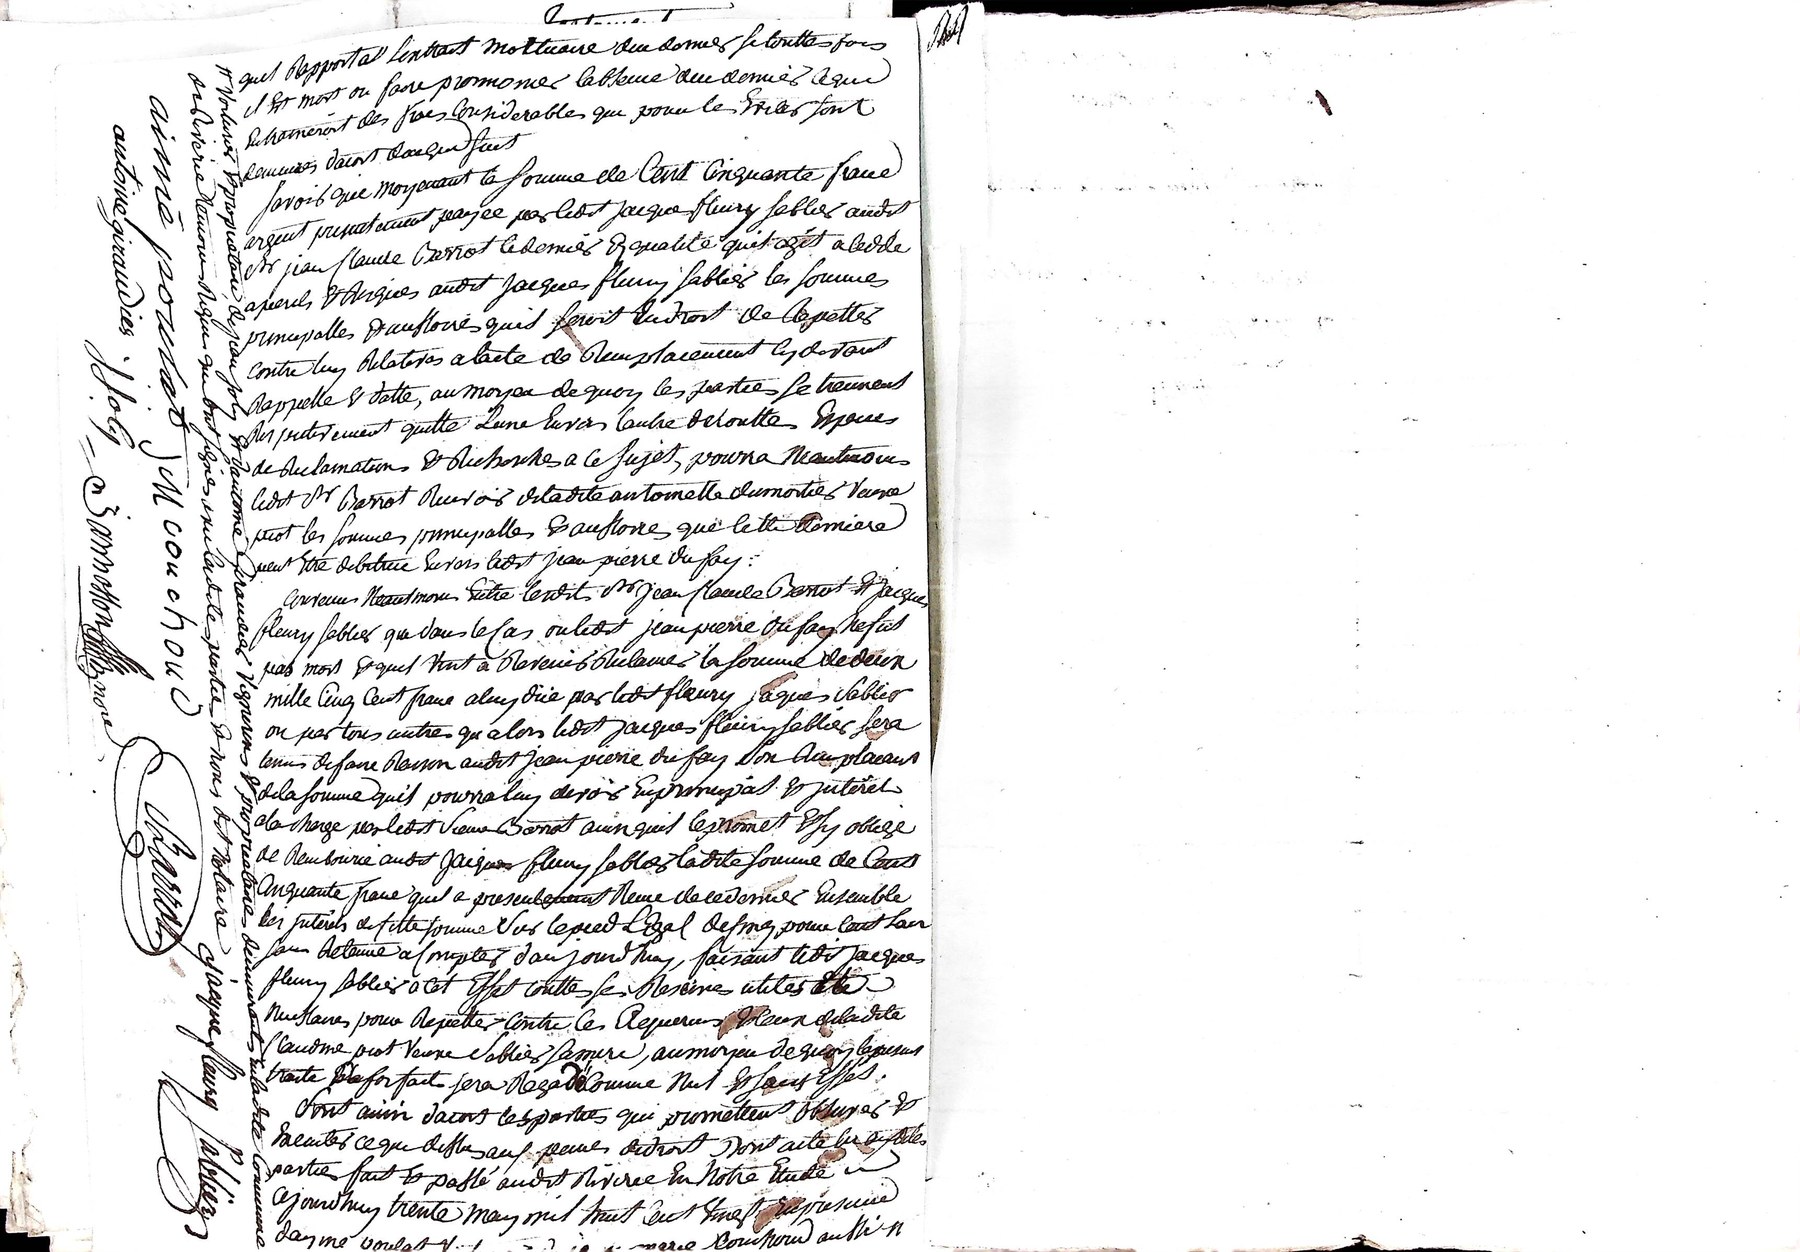 Testament
quil Rapportat lextrait mortuaire du dernier si touttes fois
il Est mort ou faire prononcer labsence du dernier ce qui
Entraineroit des frais Considerables que pour les Eviter sont
demeures dacord de ce qui suit
savoir que moyenant la somme de Cent Cinquante franc
argent presentement payee par ledit jacque fleury sablier audit
Sr jean Claude Barriot ce dernier En qualité quil agit a cedde
audit jacques fleury sablier les sommes
principalles & accessoires quil seroit En droit de Repetter
contre luy Relatives a lacte de Remplacement cy devant
Rappellé & datté, au moyen de quoy les parties se tiennent
Respectivement quitte Lune Envers lautre de touttes Especes
de Reclamations & Recherches a ce sujet, pourra Neantmoins
ledit Sr Barriot Recevoir de ladite antoinette dumortier veuve
piot les sommes principalles & accessoires que cette derniere
peut Etre debitrice Envers ledit jean pierre du fay :
Convenu Neantmoins Entre lesdits Sr jean Claude Barriot & jacques
fleury sablier que dans le Cas ou ledit jean pierre du fay Ne fut
pas mort & quil vint a Revenir Reclamer la somme de deux
mille Cinq Cent franc a luy due par ledit fleury jaques sablier
ou par tous autres qualors ledit jacques fleury sablier sera
tenu de faire Raison audit jean pierre du fay son Remplacant
de la somme quil pourra luy devoir En principal & jnterets
a la charge par ledit sieur Barriot ainsi quil le promet & sy oblige
de Rembourser audit jacques fleury sablier ladite somme de Cent
Cinquante franc quil a presentement Recue de ce dernier Ensemble
les jnterets de cette somme sur le pied Legal de cinq pour cent lan
sans Retenue a Compter daujourdhuy, faisant ledit jacques
fleury sablier a cet Effet touttes ses Reserves utiles Et
Necessaires pour Repetter Contre les de ladite
Claudine piot veuve sablier sa mere, au moyen de quoy le present
traité a forfait sera Regardé Comme Nul & sans Effet.
Sont ainsi dacord les parties qui promettent observer &
Executer ce que dessus aux peines de droit Dont acte lu auxdites
parties fait & passé audit Riverie En Notre Etude
Cejourdhuy trente may mil huit Cent vingt En presence
dayme poulat marie Couchoud aussi
& voiturier & proprietaire, de jean joly & dantoine Giraudier vignerons & proprietaires demeurants En ladite Commune
de Riverie temoins Requis qui ont signé avec ladite partie & nous dit Notaire
jacque fleury sablier
aimé poulat J M couchoud
Barriot
antoine giraudier . J joly